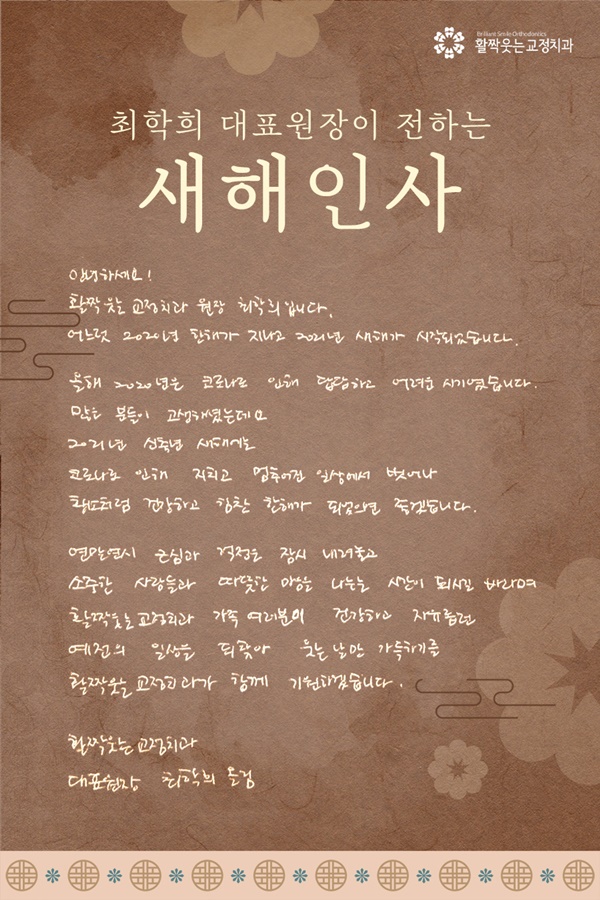 Brilliant Smile Orthodontics
활짝웃는교정치과
최학희 대표원장이 전하는
새해인사
안녕하세요!
활짝웃는 교정치과 원장 최학희입니다.
어느덧 2020년 한해가 지나고 2021년 새해가 시작되었습니다.
올해 2020년은 코로나로 인해 답답하고 어려운 시기였습니다.
많은 분들이 고생하셨는데요
2021년 신축년 새해에는
코로나로 인해 지치고 멈추어진 일상에서 벗어나
황소처럼 건강하고 힘찬 한해가 되었으면 좋겠습니다.
연말연시 근심과 걱정은 잠시 내려놓고
소중한 사람들과 따뜻한 마음을 나누는 시간이 되시길 바라며
활짝웃는교정치과 가족 여러분의 건강하고 자유롭던
예전의 일상을 되찾아 웃는 날만 가득하기를
활짝웃는교정치과가 함께 기원하겠습니다.
활짝웃는교정치과
대표원장 최학희 올림